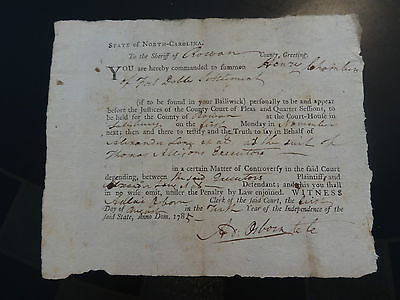 STATE of NORTH-CAROLINA.
To the Sheriff of Rowan County, Greeting.
YOU are hereby commanded to summon Henry
of
(if to be found in your Bailiwick) personally to be and appear
before the Justices of the County Court of Pleas and Quarter Sessions, to
be held for the County of Rowan at the Court-House in
Salisbury on the first Monday in November
next; then and there to testify and the Truth to say in Behalf of
Alexander Long et al at the suit of
Thomas Allisons Executors
in a certain Matter of Controversy in the said Court
depending, between Plaintiff and
Defendant; and this you shall
in no wise omit, under the Penalty by Law enjoined. WITNESS
Adlai Osborn Clerk of the said Court, the first
Day of August in the Tenth Year of the Independence of
the said State, Anno Dom. 1785
Ad. Osborn